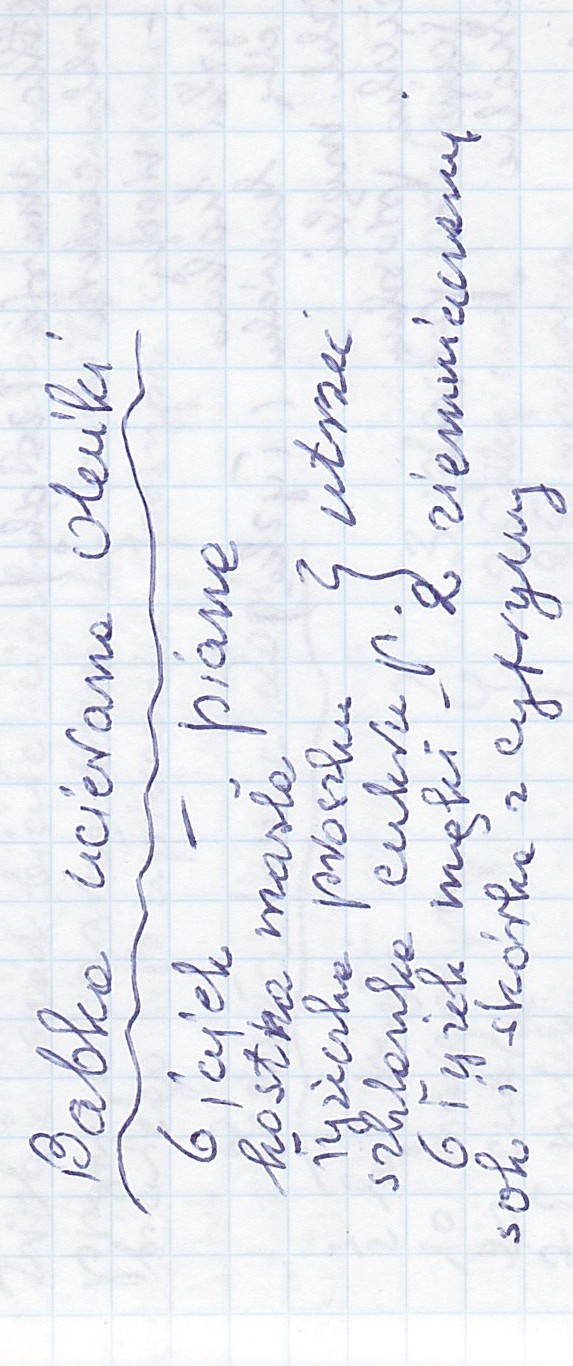 Babka ucierana Oleńki
6 jajek - piana
kostka masła
łyżeczka proszku } utrzeć
szklanka cukru p.
6 łyżek mąki - 2 ziemniaczanej
sok i skórka z cytryny